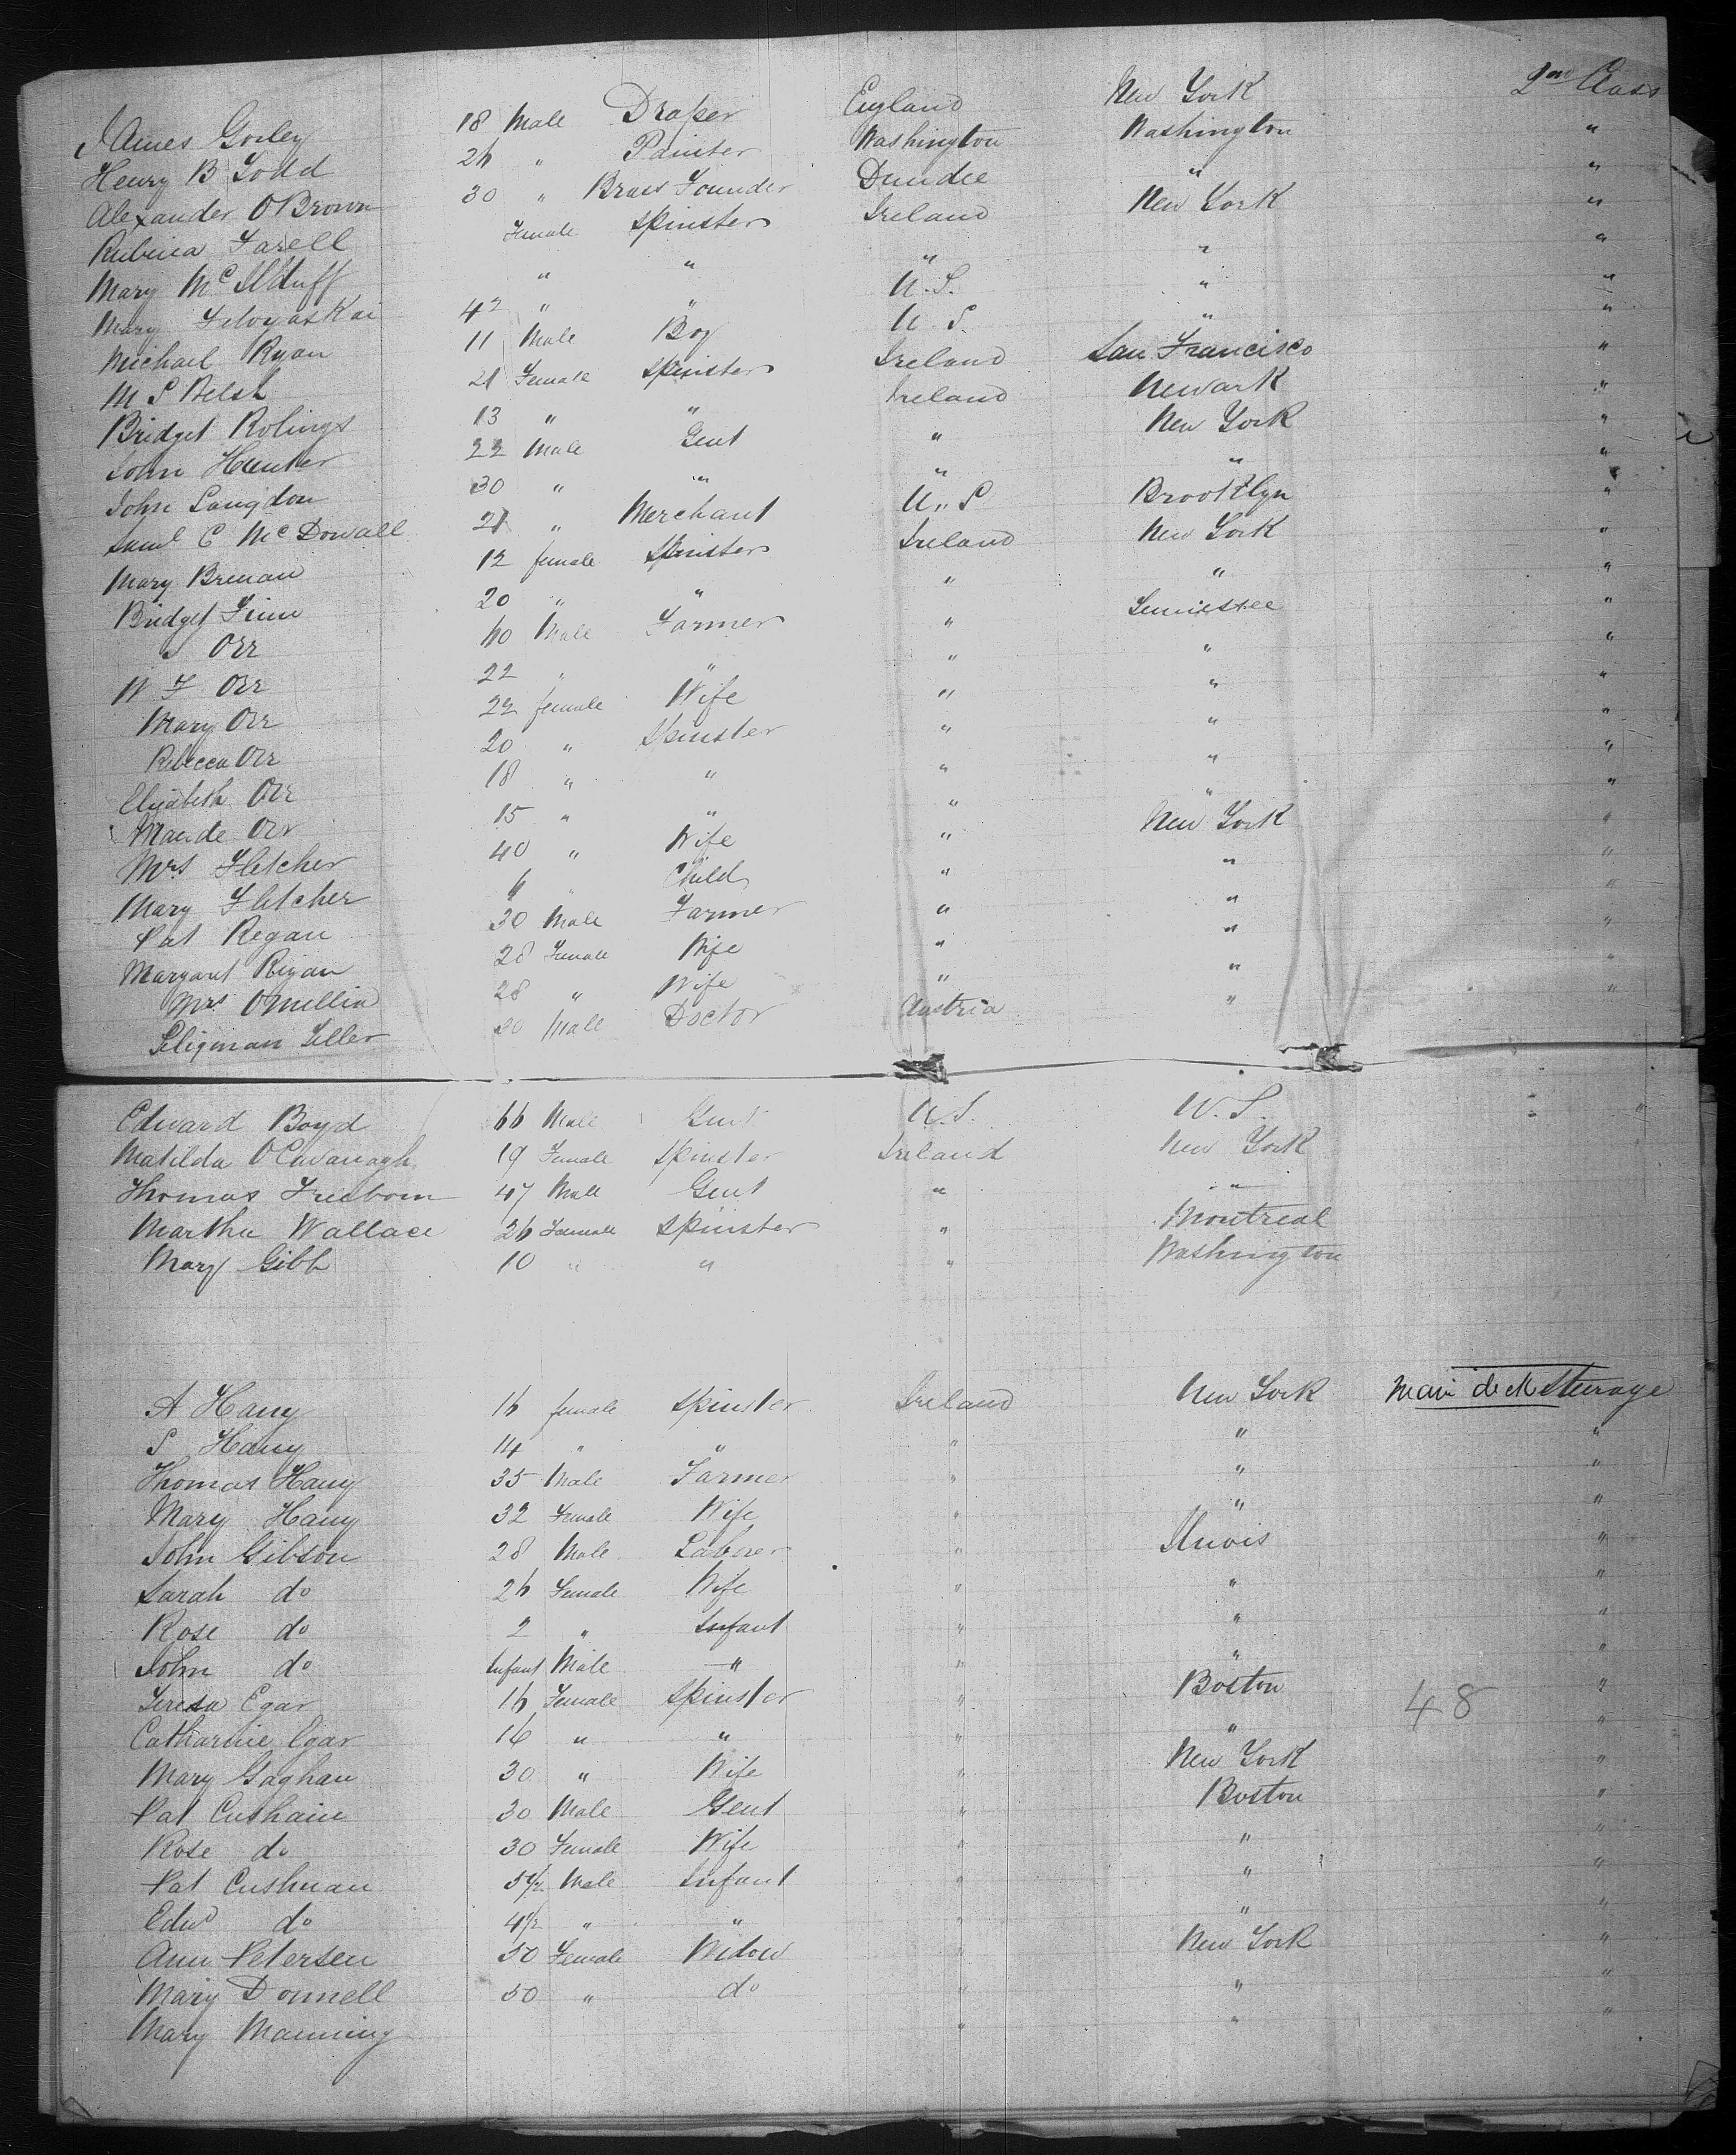 James Gorley 18 Male Draper England New York 2nd Class
Henry B Todd 26 " Painter Washington Washington "
Alexander O Brown 30 " Brass Founder Dundee " "
Rubina Farell Female Spinster Ireland New York "
Mary McIlduff " " " " "
Mary 42 " " U.S. " "
Michael Ryan 11 Male Boy U.S. " "
M S Belsh 21 Female Spinster Ireland San Francisco "
Bridget Rolings 13 " " Ireland Newark "
John Hunter 22 Male Gent " New York "
John Langdon 30 " " " " "
Saml C McDowall 21 " Merchant U.S Brooklyn "
Mary Brenan 12 female Spinster Ireland New York "
Bridget Finn 20 " " " " "
Orr 60 Male Farmer " Tennessee "
W F Orr 22 " " " " "
Mary Orr 22 female Wife " " "
Rebecca Orr 20 " Spinster " " "
Elizabeth Orr 18 " " " " "
Maude Orr 15 " " " " "
Mrs Fletcher 40 " Wife " New York "
Mary Fletcher 6 " Child " " "
Pat Regan 30 Male Farmer " " "
Margaret Rigan 28 Female Wife " " "
Mrs OMellin 28 " Wife " " "
Seligman Teller 30 Male Doctor Austria " "
Edward Boyd 66 Male Gent U.S. U.S. "
Matilda O Cavanagh 19 Female Spinster Ireland New York
Thomas Freeborn 47 Male Gent " "
Martha Wallace 26 Female Spinster " Montreal
Mary Gibb 10 " " " Washington
A Hany 16 female Spinster Ireland New York Main deck Sterage
S Hany 14 " " " " "
Thomas Hany 35 Male Farmer " " "
Mary Hany 32 Female Wife " " "
John Gibson 28 Male Laborer " Ilinois "
Sarah do 26 Female Wife " " "
Rose do 2 " Infant " " "
John do Infant Male " " " "
Teresa Egar 16 Female Spinster " Boston "
48
Catharine Egar 16 " " " " "
Mary Gaghan 30 " Wife " New York "
Pat Cushain 30 Male Gent " Boston "
Rose do 30 Female Wife " " "
Pat Cushman 5 1/2 Male Infant " " "
Edwd do 4 1/2 " " " " "
Ann Petersen 50 Female Widow " New York "
Mary Donnell 50 " do " " "
Mary Manning " " "